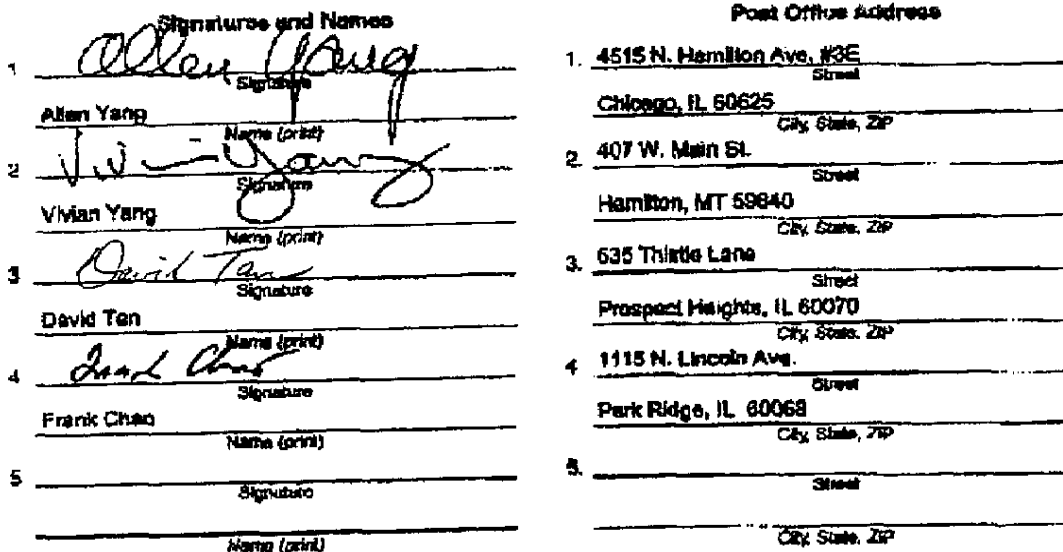 Signatures and Names
1 Allen Yang
Signature
Allen Yang
Name (print)
2 Vivian Yang
Signature
Vivian Yang
Name (print)
3 David Tan
Signature
David Tan
Name (print)
4 Frank Chao
Signature
Frank Chao
Name (print)
5
Signature
Name (print)
Post Office Address
1. 4515 N. Hamilton Ave, #3E
Street
Chicago, IL 60625
City, State, ZIP
2. 407 W. Main St.
Street
Hamilton, MT 59840
City, State, ZIP
3. 635 Thistle Lane
Street
Prospect Heights, IL 60070
City, State, ZIP
4 1115 N. Lincoln Ave.
Street
Park Ridge, IL 60068
City, State, ZIP
5.
Street
City, State, ZIP